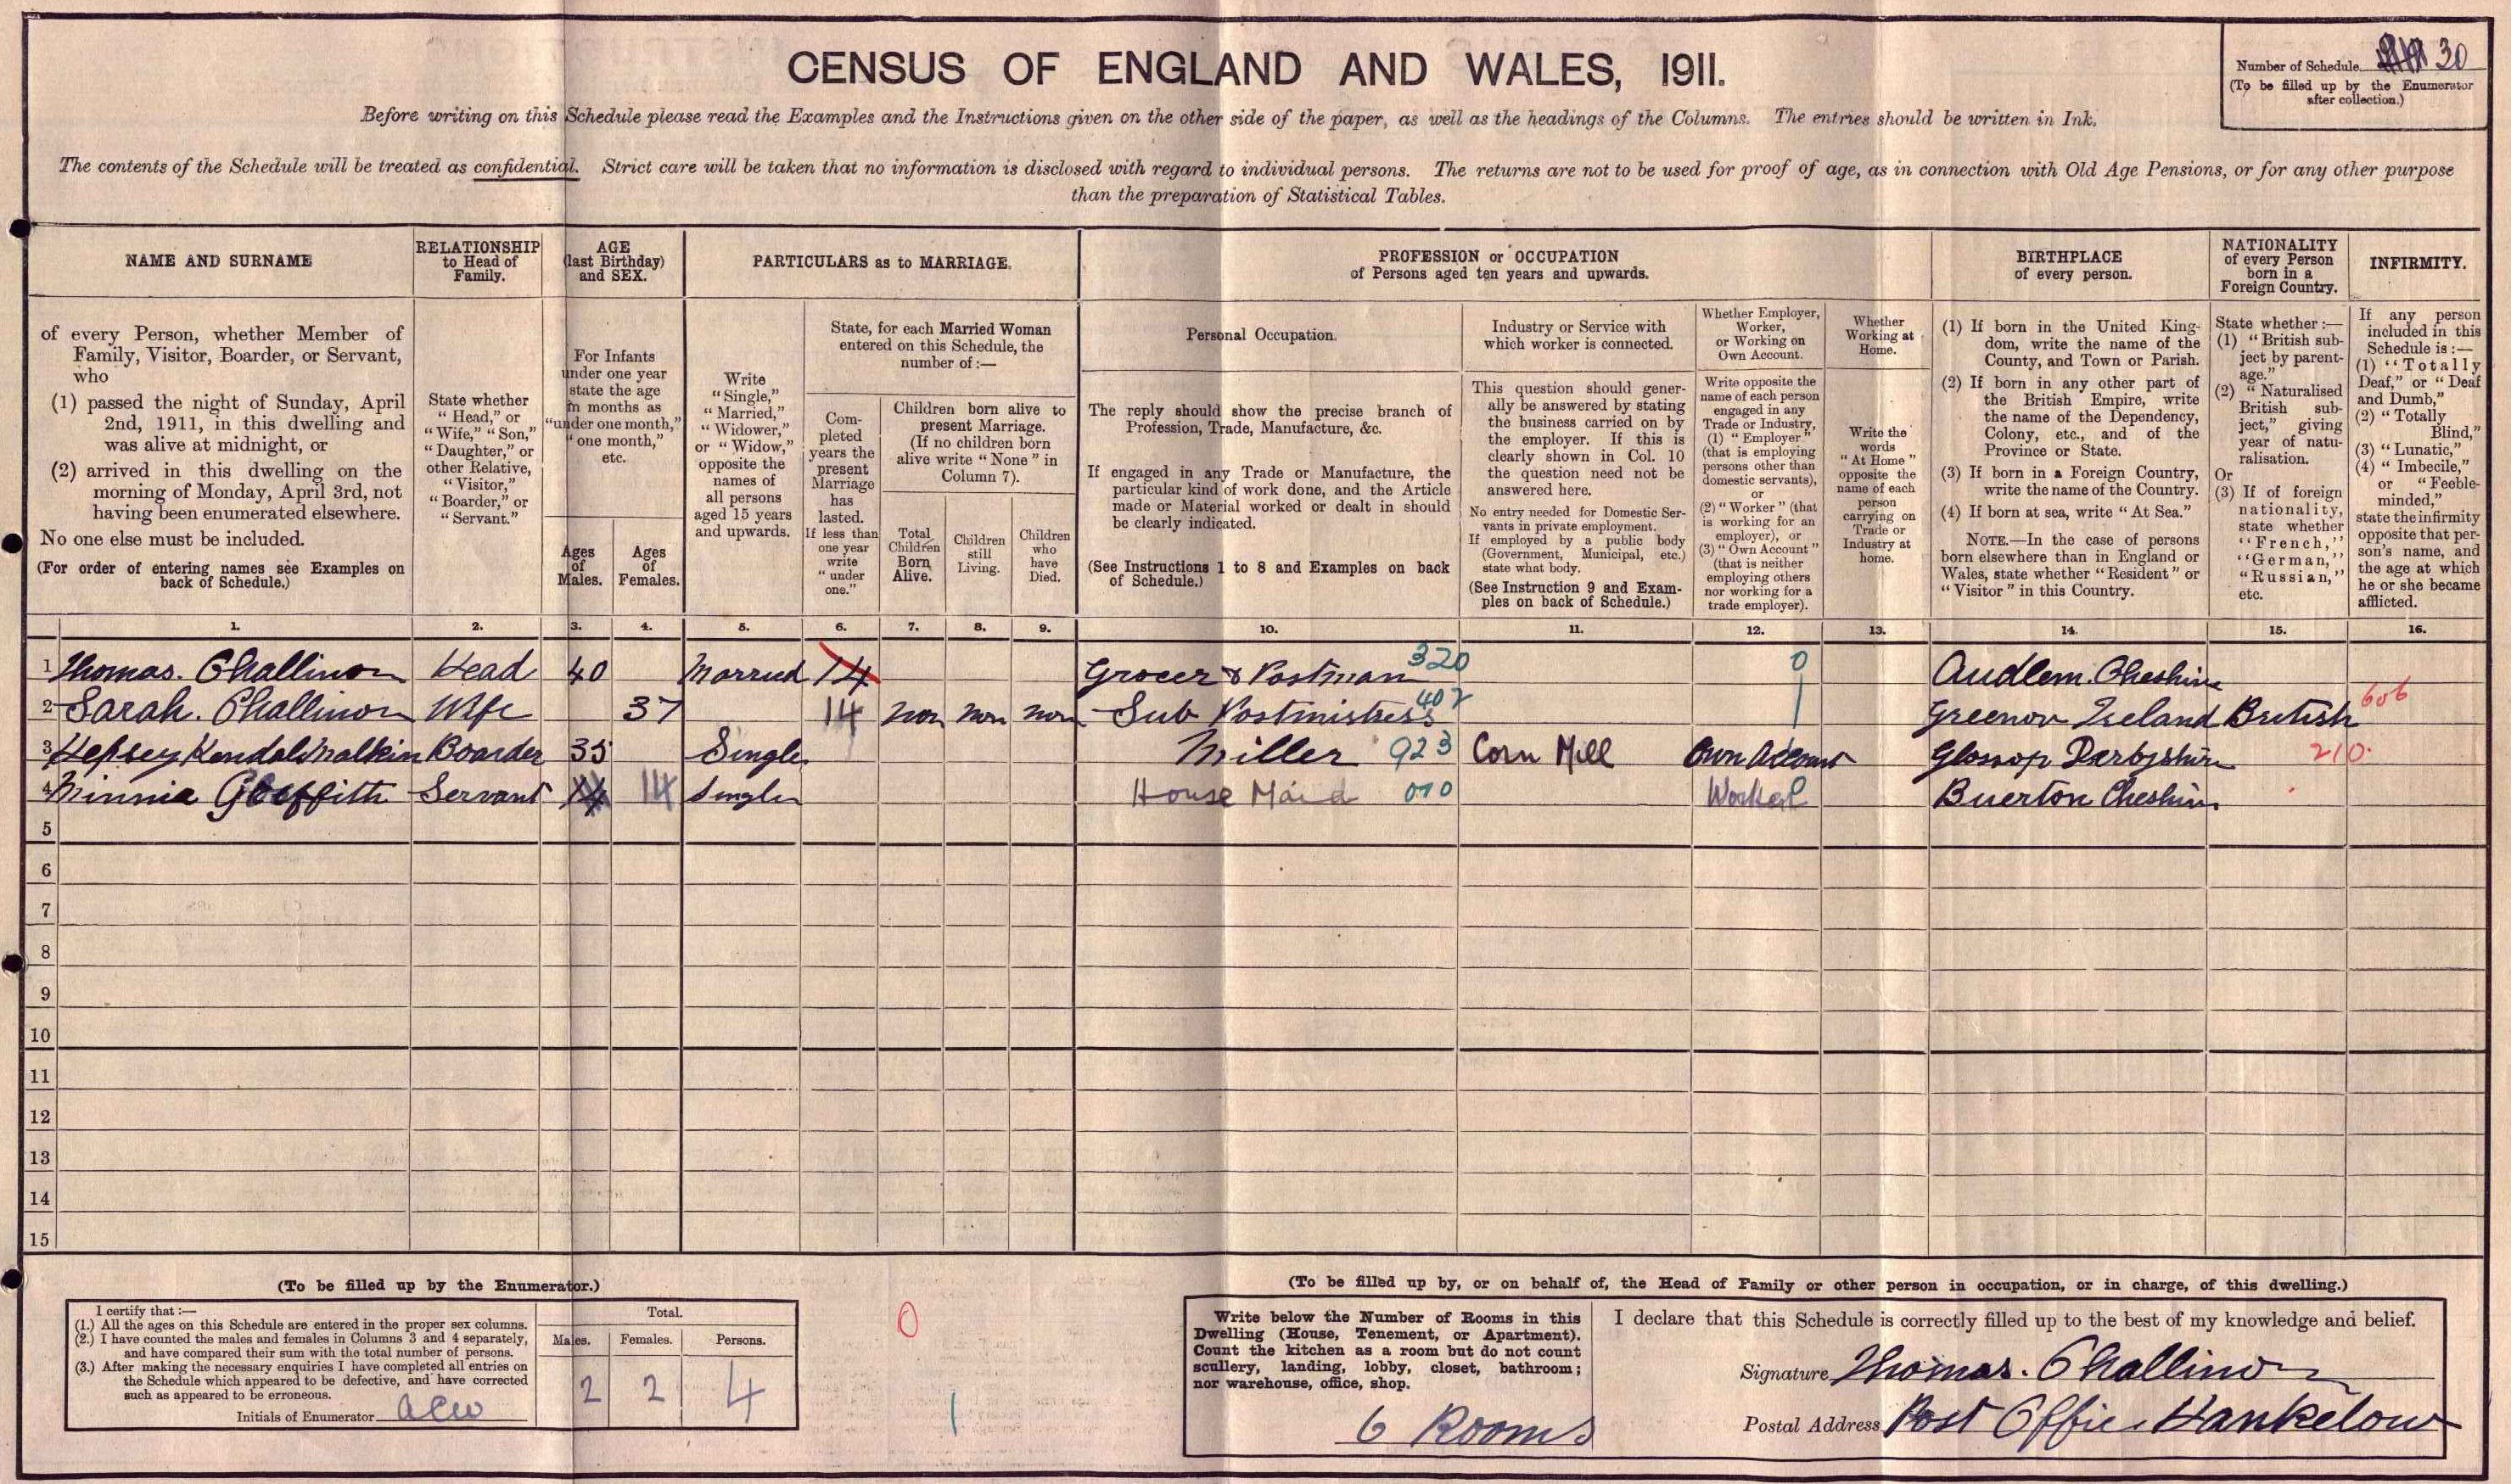 CENSUS OF ENGLAND AND WALES, 1911.
Number of Schedule 30
(To be filled up by the Enumerator
after collection.)
Before writing on this Schedule please read the Examples and the Instructions given on the other side of the paper, as well as the headings of the Columns. The entries should be written in Ink.
The contents of the Schedule will be treated as confidential. Strict care will be taken that no information is disclosed with regard to individual persons. The returns are not to be used for proof of age, as in connection with Old Age Pensions, or for any other purpose
than the preparation of Statistical Tables.
NAME AND SURNAME
of every Person, whether Member of
Family, Visitor, Boarder, or Servant,
who
(1) passed the night of Sunday, April
2nd, 1911, in this dwelling and
was alive at midnight, or
(2) arrived in this dwelling on the
morning of Monday, April 3rd, not
having been enumerated elsewhere.
No one else must be included.
(For order of entering names see Examples on
back of Schedule.)
RELATIONSHIP
to Head of
Family.
State whether
"Head," or
"Wife," "Son,"
"Daughter," or
other Relative,
"Visitor,"
"Boarder," or
"Servant."
AGE
(last Birthday)
and SEX.
For Infants
under one year
state the age
in months as
"under one month,"
"one month,"
etc.
Ages
of
Males.
Ages
of
Females.
PARTICULARS as to MARRIAGE.
Write
"Single,"
"Married,"
"Widower,"
or "Widow,"
opposite the
names of
all persons
aged 15 years
and upwards.
State, for each Married Woman
entered on this Schedule, the
number of :—
Com-
pleted
years the
present
Marriage
has
lasted.
If less than
one year
write
"under
one."
Children born alive to
present Marriage.
(If no children born
alive write "None" in
Column 7).
Total
Children
Born
Alive.
Children
still
Living.
Children
who
have
Died.
PROFESSION or OCCUPATION
of Persons aged ten years and upwards.
Personal Occupation.
The reply should show the precise branch of
Profession, Trade, Manufacture, &c.
If engaged in any Trade or Manufacture, the
particular kind of work done, and the Article
made or Material worked or dealt in should
be clearly indicated.
(See Instructions 1 to 8 and Examples on back
of Schedule.)
Industry or Service with
which worker is connected.
This question should gener-
ally be answered by stating
the business carried on by
the employer. If this is
clearly shown in Col. 10
the question need not be
answered here.
No entry needed for Domestic Ser-
vants in private employment.
If employed by a public body
(Government, Municipal, etc.)
state what body.
(See Instruction 9 and Exam-
ples on back of Schedule.)
Whether Employer,
Worker,
or Working on
Own Account.
Write opposite the
name of each person
engaged in any
Trade or Industry,
(1) "Employer"
(that is employing
persons other than
domestic servants),
or
(2) "Worker" (that
is working for an
employer), or
(3) "Own Account"
(that is neither
employing others
nor working for a
trade employer).
Whether
Working at
Home.
Write the
words
"At Home"
opposite the
name of each
person
carrying on
Trade or
Industry at
home.
BIRTHPLACE
of every person.
(1) If born in the United King-
dom, write the name of the
County, and Town or Parish.
(2) If born in any other part of
the British Empire, write
the name of the Dependency,
Colony, etc., and of the
Province or State.
(3) If born in a Foreign Country,
write the name of the Country.
(4) If born at sea, write "At Sea."
NOTE.—In the case of persons
born elsewhere than in England or
Wales, state whether "Resident" or
"Visitor" in this Country.
NATIONALITY
of every Person
born in a
Foreign Country.
State whether :—
(1) "British sub-
ject by parent-
age."
(2) "Naturalised
British sub-
ject," giving
year of natu-
ralisation.
Or
(3) If of foreign
nationality,
state whether
"French,"
"German,"
"Russian,"
etc.
INFIRMITY.
If any person
included in this
Schedule is :—
(1) "Totally
Deaf," or "Deaf
and Dumb,"
(2) "Totally
Blind,"
(3) "Lunatic,"
(4) "Imbecile,"
or "Feeble-
minded,"
state the infirmity
opposite that per-
son's name, and
the age at which
he or she became
afflicted.
1. 2. 3. 4. 5. 6. 7. 8. 9. 10. 11. 12. 13. 14. 15. 16.
1 Thomas. Challinor Head 40 Married 14 Grocer & Postman 320 0 Audlem. Cheshire
2 Sarah. Challinor Wife 37 14 non non non Sub Postmistress 407 1 Greenor Ireland British 606
3 Kendal Malkin Boarder 35 Single Miller 923 Corn Mill Own Account Glossop Derbyshire 210
4 Minnie Griffith Servant 14 Single House Maid 010 Worker Buerton Cheshire
5
6
7
8
9
10
11
12
13
14
15
(To be filled up by the Enumerator.)
I certify that :—
(1.) All the ages on this Schedule are entered in the proper sex columns.
(2.) I have counted the males and females in Columns 3 and 4 separately,
and have compared their sum with the total number of persons.
(3.) After making the necessary enquiries I have completed all entries on
the Schedule which appeared to be defective, and have corrected
such as appeared to be erroneous.
Initials of Enumerator
Total.
Males. Females. Persons.
2 2 4
0
1
(To be filled up by, or on behalf of, the Head of Family or other person in occupation, or in charge, of this dwelling.)
Write below the Number of Rooms in this
Dwelling (House, Tenement, or Apartment).
Count the kitchen as a room but do not count
scullery, landing, lobby, closet, bathroom;
nor warehouse, office, shop.
6 Rooms
I declare that this Schedule is correctly filled up to the best of my knowledge and belief.
Signature Thomas. Challinor
Postal Address Post Office Hankelow